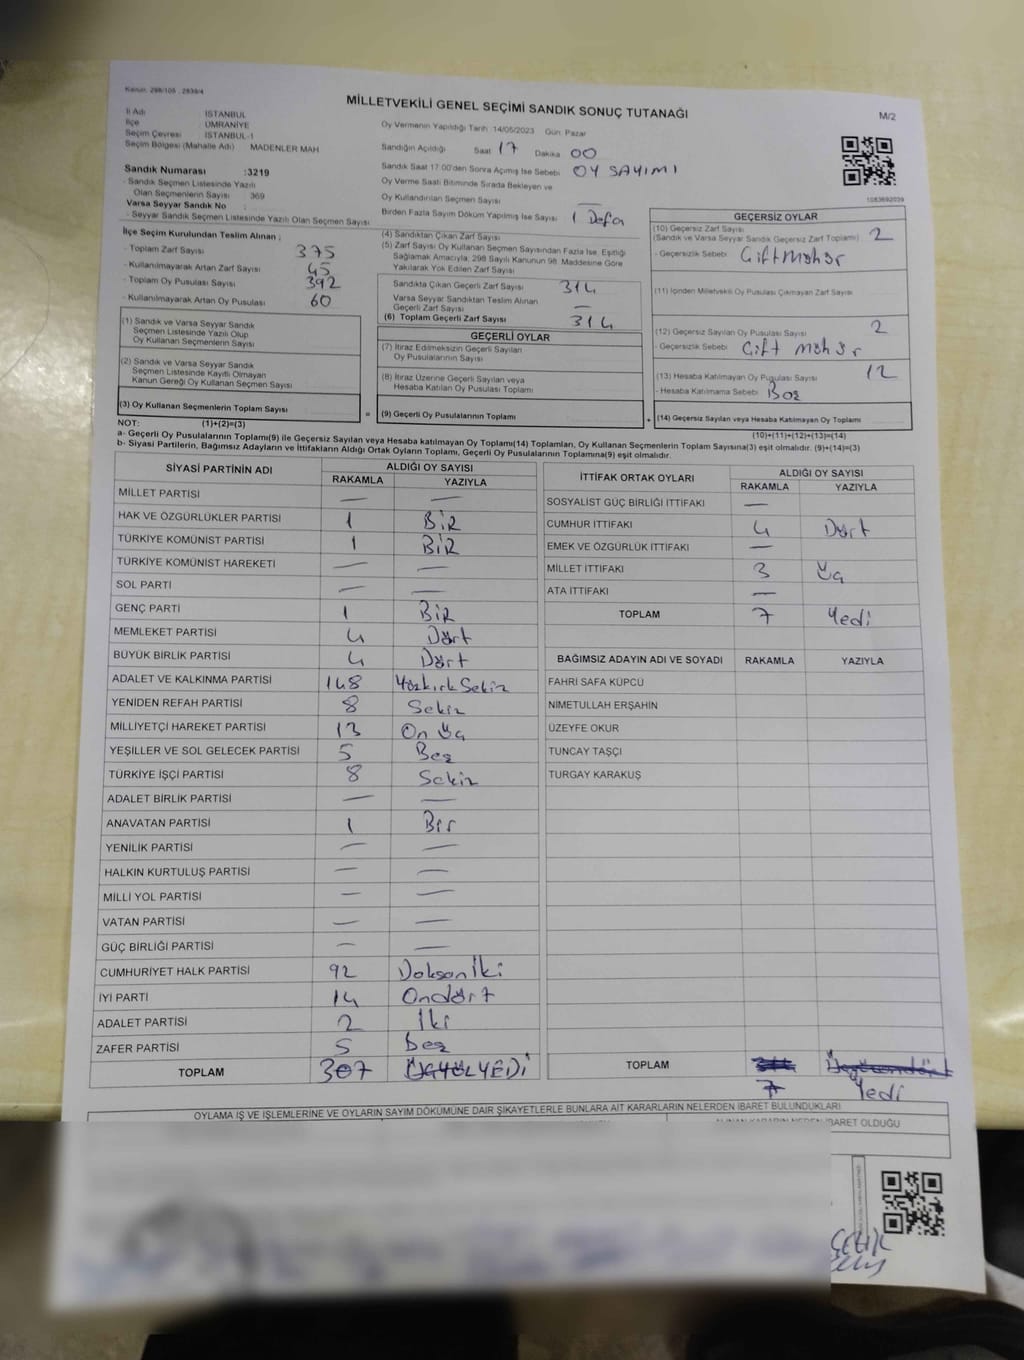 Kanun: 298/105 , 2839/4
MİLLETVEKİLİ GENEL SEÇİMİ SANDIK SONUÇ TUTANAĞI
M/2
İl Adı : İSTANBUL
İlçe : ÜMRANİYE
Seçim Çevresi : İSTANBUL-1
Seçim Bölgesi (Mahalle Adı) MADENLER MAH
Sandık Numarası :3219
- Sandık Seçmen Listesinde Yazılı
Olan Seçmenlerin Sayısı : 369
Varsa Seyyar Sandık No :
- Seyyar Sandık Seçmen Listesinde Yazılı Olan Seçmen Sayısı
Oy Vermenin Yapıldığı Tarih: 14/05/2023 Gün: Pazar
Sandığın Açıldığı Saat 17 Dakika 00
Sandık Saat 17:00'den Sonra Açılmış İse Sebebi: OY SAYIMI
Oy Verme Saati Bitiminde Sırada Bekleyen ve
Oy Kullandırılan Seçmen Sayısı —
Birden Fazla Sayım Döküm Yapılmış İse Sayısı 1 Defa
1083692039
İlçe Seçim Kurulundan Teslim Alınan ;
- Toplam Zarf Sayısı 375
- Kullanılmayarak Artan Zarf Sayısı 45
- Toplam Oy Pusulası Sayısı 392
- Kullanılmayarak Artan Oy Pusulası 60
(1) Sandık ve Varsa Seyyar Sandık
Seçmen Listesinde Yazılı Olup
Oy Kullanan Seçmenlerin Sayısı
(2) Sandık ve Varsa Seyyar Sandık
Seçmen Listesinde Kayıtlı Olmayan
Kanun Gereği Oy Kullanan Seçmen Sayısı
(3) Oy Kullanan Seçmenlerin Toplam Sayısı
(4) Sandıktan Çıkan Zarf Sayısı
(5) Zarf Sayısı Oy Kullanan Seçmen Sayısından Fazla İse, Eşitliği
Sağlamak Amacıyla, 298 Sayılı Kanunun 98. Maddesine Göre
Yakılarak Yok Edilen Zarf Sayısı
Sandıkta Çıkan Geçerli Zarf Sayısı 314
Varsa Seyyar Sandıktan Teslim Alınan
Geçerli Zarf Sayısı —
(6) Toplam Geçerli Zarf Sayısı 314
GEÇERLİ OYLAR
(7) İtiraz Edilmeksizin Geçerli Sayılan
Oy Pusulalarının Sayısı
(8) İtiraz Üzerine Geçerli Sayılan veya
Hesaba Katılan Oy Pusulası Toplamı
= (9) Geçerli Oy Pusulalarının Toplamı
GEÇERSİZ OYLAR
(10) Geçersiz Zarf Sayısı
(Sandık ve Varsa Seyyar Sandık Geçersiz Zarf Toplamı) 2
- Geçersizlik Sebebi: Çift Mühür
(11) İçinden Milletvekili Oy Pusulası Çıkmayan Zarf Sayısı
(12) Geçersiz Sayılan Oy Pusulası Sayısı 2
- Geçersizlik Sebebi: Çift Mühür
(13) Hesaba Katılmayan Oy Pusulası Sayısı 12
- Hesaba Katılmama Sebebi: Boş
+ (14) Geçersiz Sayılan veya Hesaba Katılmayan Oy Toplamı
NOT: (1)+(2)=(3)
(10)+(11)+(12)+(13)=(14)
a- Geçerli Oy Pusulalarının Toplamı(9) ile Geçersiz Sayılan veya Hesaba katılmayan Oy Toplamı(14) Toplamları, Oy Kullanan Seçmenlerin Toplam Sayısına(3) eşit olmalıdır. (9)+(14)=(3)
b- Siyasi Partilerin, Bağımsız Adayların ve İttifakların Aldığı Ortak Oyların Toplamı, Geçerli Oy Pusulalarının Toplamına(9) eşit olmalıdır.
SİYASİ PARTİNİN ADI ALDIĞI OY SAYISI
RAKAMLA YAZIYLA
MİLLET PARTİSİ — —
HAK VE ÖZGÜRLÜKLER PARTİSİ 1 BİR
TÜRKİYE KOMÜNİST PARTİSİ 1 BİR
TÜRKİYE KOMÜNİST HAREKETİ — —
SOL PARTİ — —
GENÇ PARTİ 1 BİR
MEMLEKET PARTİSİ 4 Dört
BÜYÜK BİRLİK PARTİSİ 4 Dört
ADALET VE KALKINMA PARTİSİ 148 Yüzkırk Sekiz
YENİDEN REFAH PARTİSİ 8 Sekiz
MİLLİYETÇİ HAREKET PARTİSİ 13 On Üç
YEŞİLLER VE SOL GELECEK PARTİSİ 5 Beş
TÜRKİYE İŞÇİ PARTİSİ 8 Sekiz
ADALET BİRLİK PARTİSİ — —
ANAVATAN PARTİSİ 1 Bir
YENİLİK PARTİSİ — —
HALKIN KURTULUŞ PARTİSİ — —
MİLLİ YOL PARTİSİ — —
VATAN PARTİSİ — —
GÜÇ BİRLİĞİ PARTİSİ — —
CUMHURİYET HALK PARTİSİ 92 Doksan İki
İYİ PARTİ 14 Ondört
ADALET PARTİSİ 2 İki
ZAFER PARTİSİ 5 beş
TOPLAM 307 ÜÇYÜZYEDİ
İTTİFAK ORTAK OYLARI ALDIĞI OY SAYISI
RAKAMLA YAZIYLA
SOSYALİST GÜÇ BİRLİĞİ İTTİFAKI —
CUMHUR İTTİFAKI 4 Dört
EMEK VE ÖZGÜRLÜK İTTİFAKI —
MİLLET İTTİFAKI 3 Üç
ATA İTTİFAKI —
TOPLAM 7 Yedi
BAĞIMSIZ ADAYIN ADI VE SOYADI RAKAMLA YAZIYLA
FAHRİ SAFA KÜPCÜ
NİMETULLAH ERŞAHİN
ÜZEYFE OKUR
TUNCAY TAŞÇI
TURGAY KARAKUŞ
TOPLAM
7 Yedi
OYLAMA İŞ VE İŞLEMLERİNE VE OYLARIN SAYIM DÖKÜMÜNE DAİR ŞİKAYETLERLE BUNLARA AİT KARARLARIN NELERDEN İBARET BULUNDUKLARI
ALINAN KARARIN NEDEN İBARET OLDUĞU